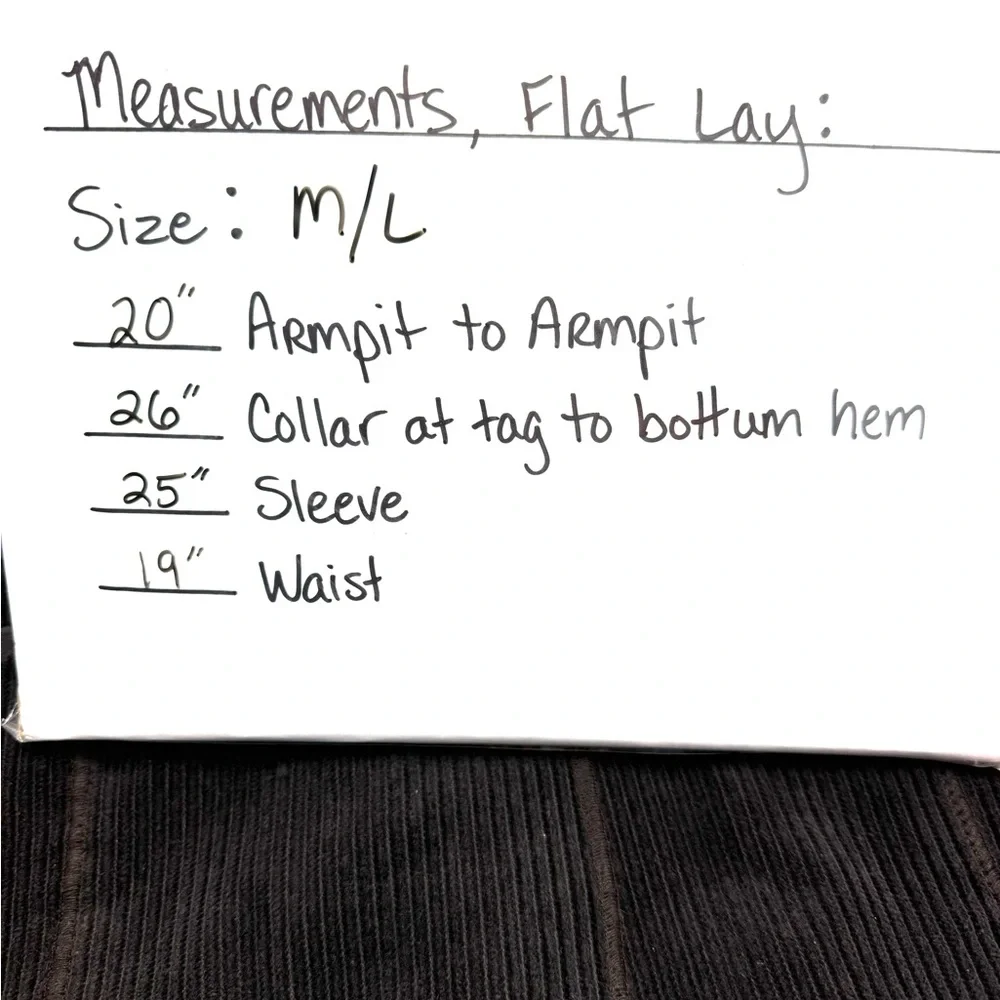 Measurements, Flat Lay:
Size: M/L
20" Armpit to Armpit
26" Collar at tag to bottum hem
25" Sleeve
19" Waist